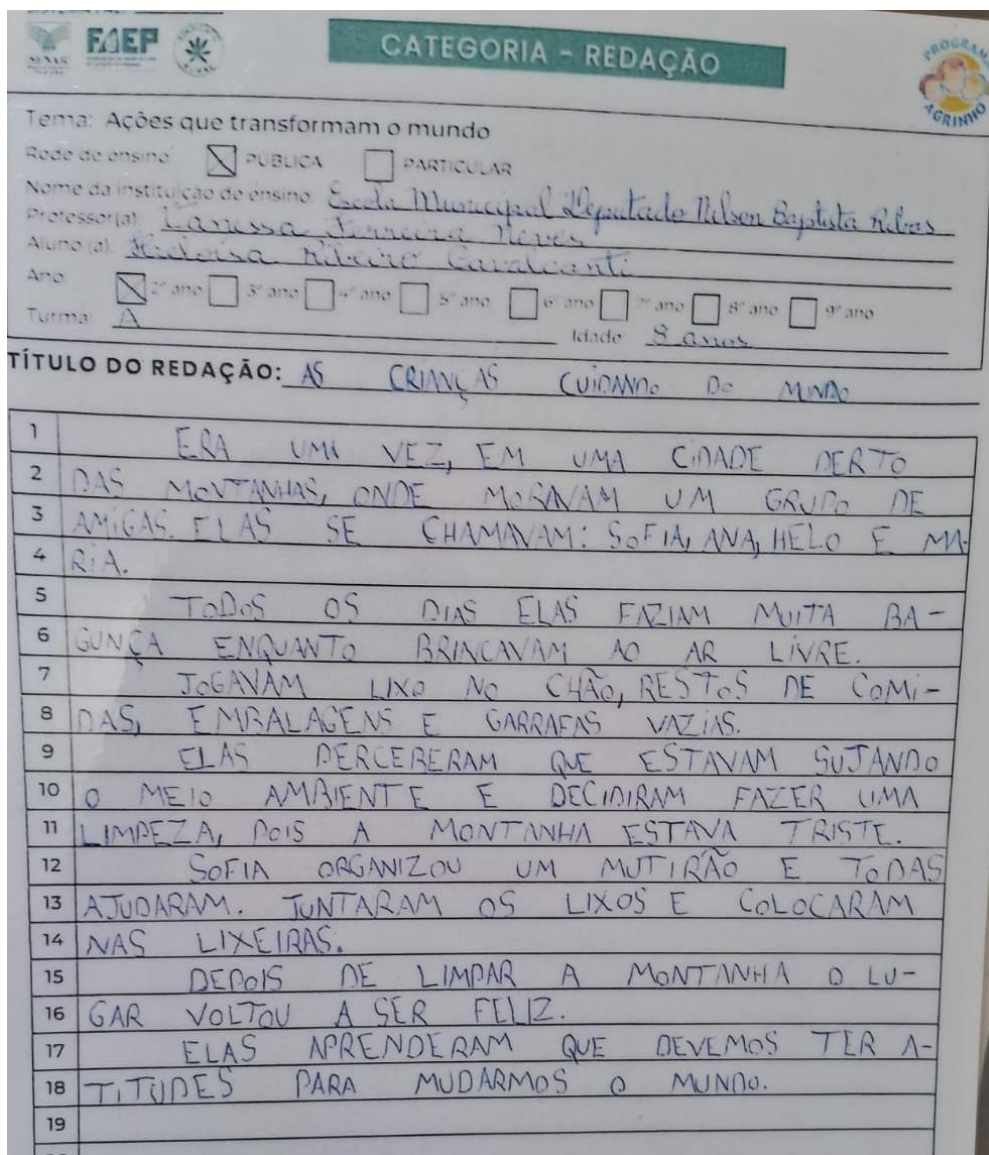 FAEP
CATEGORIA - REDAÇÃO
PROGRAMA AGRINHO
Tema: Ações que transformam o mundo
Rede de ensino PÚBLICA PARTICULAR
Nome da instituição de ensino: Escola Municipal Deputado Nilson Baptista Ribas
Professor(a): Vanessa Ferreira Neves
Aluno (a): Heloísa Ribeiro Cavalcanti
Ano: 2º ano 3º ano 4º ano 5º ano 6º ano 7º ano 8º ano 9º ano
Turma: A Idade: 8 anos
TÍTULO DO REDAÇÃO: AS CRIANÇAS CUIDANDO DO MUNDO
1 ERA UMA VEZ, EM UMA CIDADE PERTO
2 DAS MONTANHAS, ONDE MORAVAM UM GRUPO DE
3 AMIGAS. ELAS SE CHAMAVAM: SOFIA, ANA, HELO E MA-
4 RIA.
5 TODOS OS DIAS ELAS FAZIAM MUITA BA-
6 GUNÇA ENQUANTO BRINCAVAM AO AR LIVRE.
7 JOGAVAM LIXO NO CHÃO, RESTOS DE COMI-
8 DAS, EMBALAGENS E GARRAFAS VAZIAS.
9 ELAS PERCEBERAM QUE ESTAVAM SUJANDO
10 O MEIO AMBIENTE E DECIDIRAM FAZER UMA
11 LIMPEZA, POIS A MONTANHA ESTAVA TRISTE.
12 SOFIA ORGANIZOU UM MUTIRÃO E TODAS
13 AJUDARAM. JUNTARAM OS LIXOS E COLOCARAM
14 NAS LIXEIRAS.
15 DEPOIS DE LIMPAR A MONTANHA O LU-
16 GAR VOLTOU A SER FELIZ.
17 ELAS APRENDERAM QUE DEVEMOS TER A-
18 TITUDES PARA MUDARMOS O MUNDO.
19